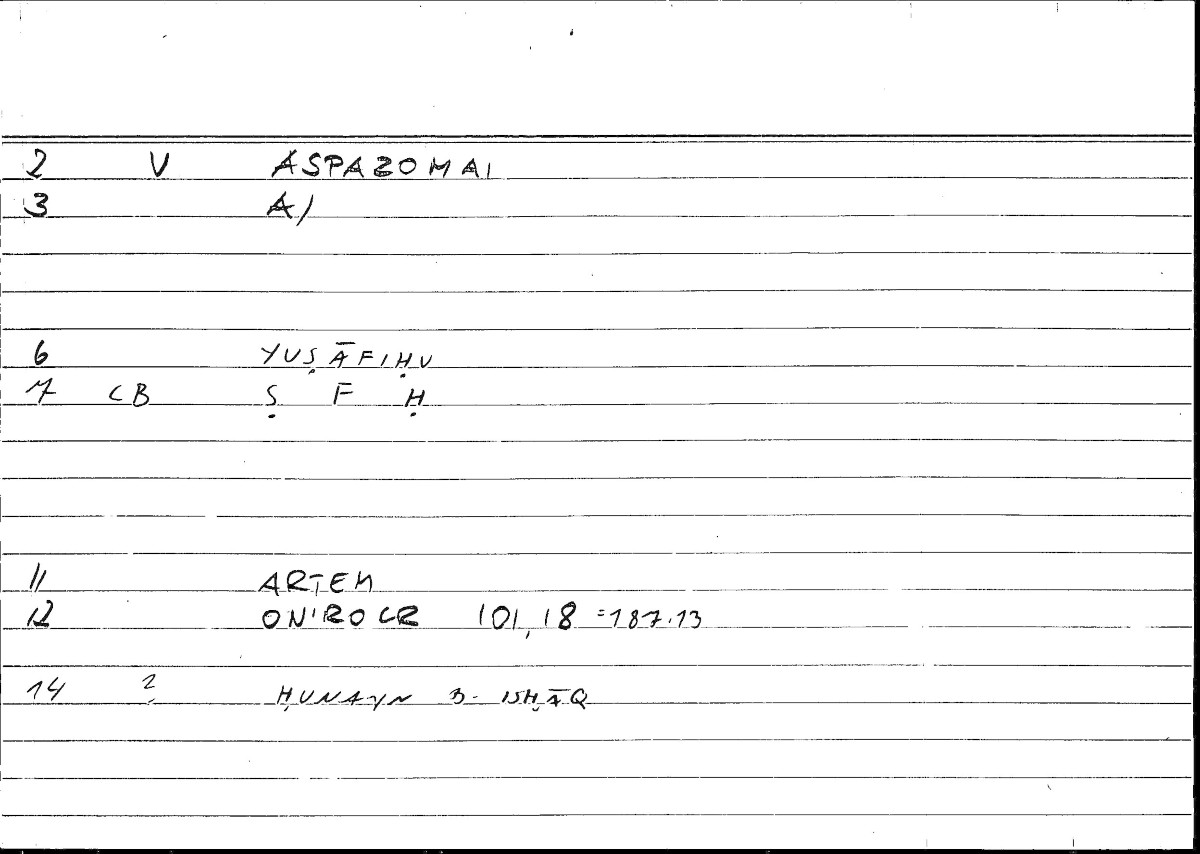 2 V ASPAZOMAI
3 A)
6 YUṢĀFIḤU
7 CB Ṣ F Ḥ
11 ARTEM
12 ON'ROCR 101,18 =187.13
14 ? ḤUNAYN B- ISḤĀQ